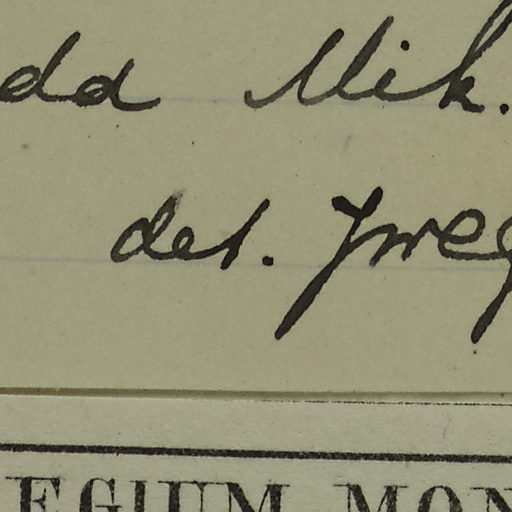 dda Mik.
det. Greg
EGIUM MON